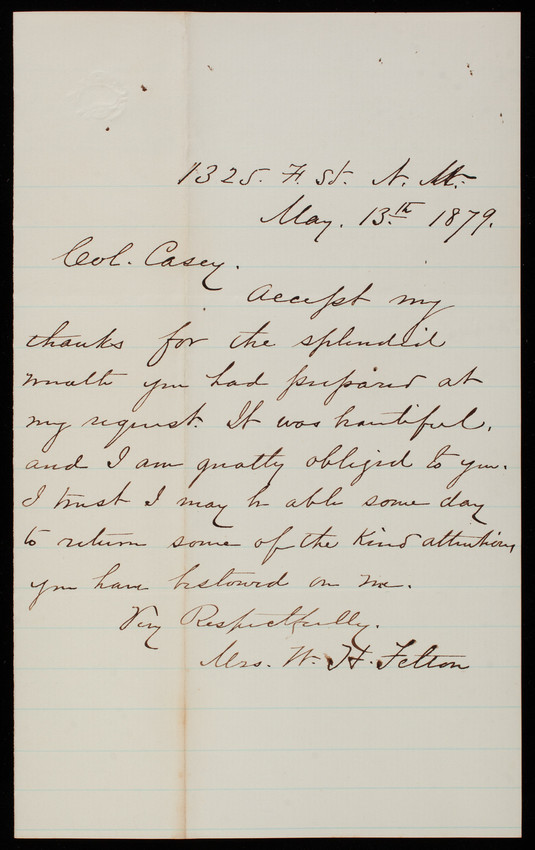 1325. F. St. N. W.
May. 13.th 1879.
Col. Casey.
Accept my
thanks for the splendid
wreath you had prepared at
my request. It was beautiful,
and I am greatly obliged to you.
I trust I may be able some day
to return some of the kind attentions
you have bestowed on me.
Very Respectfully.
Mrs. W. H. Felton